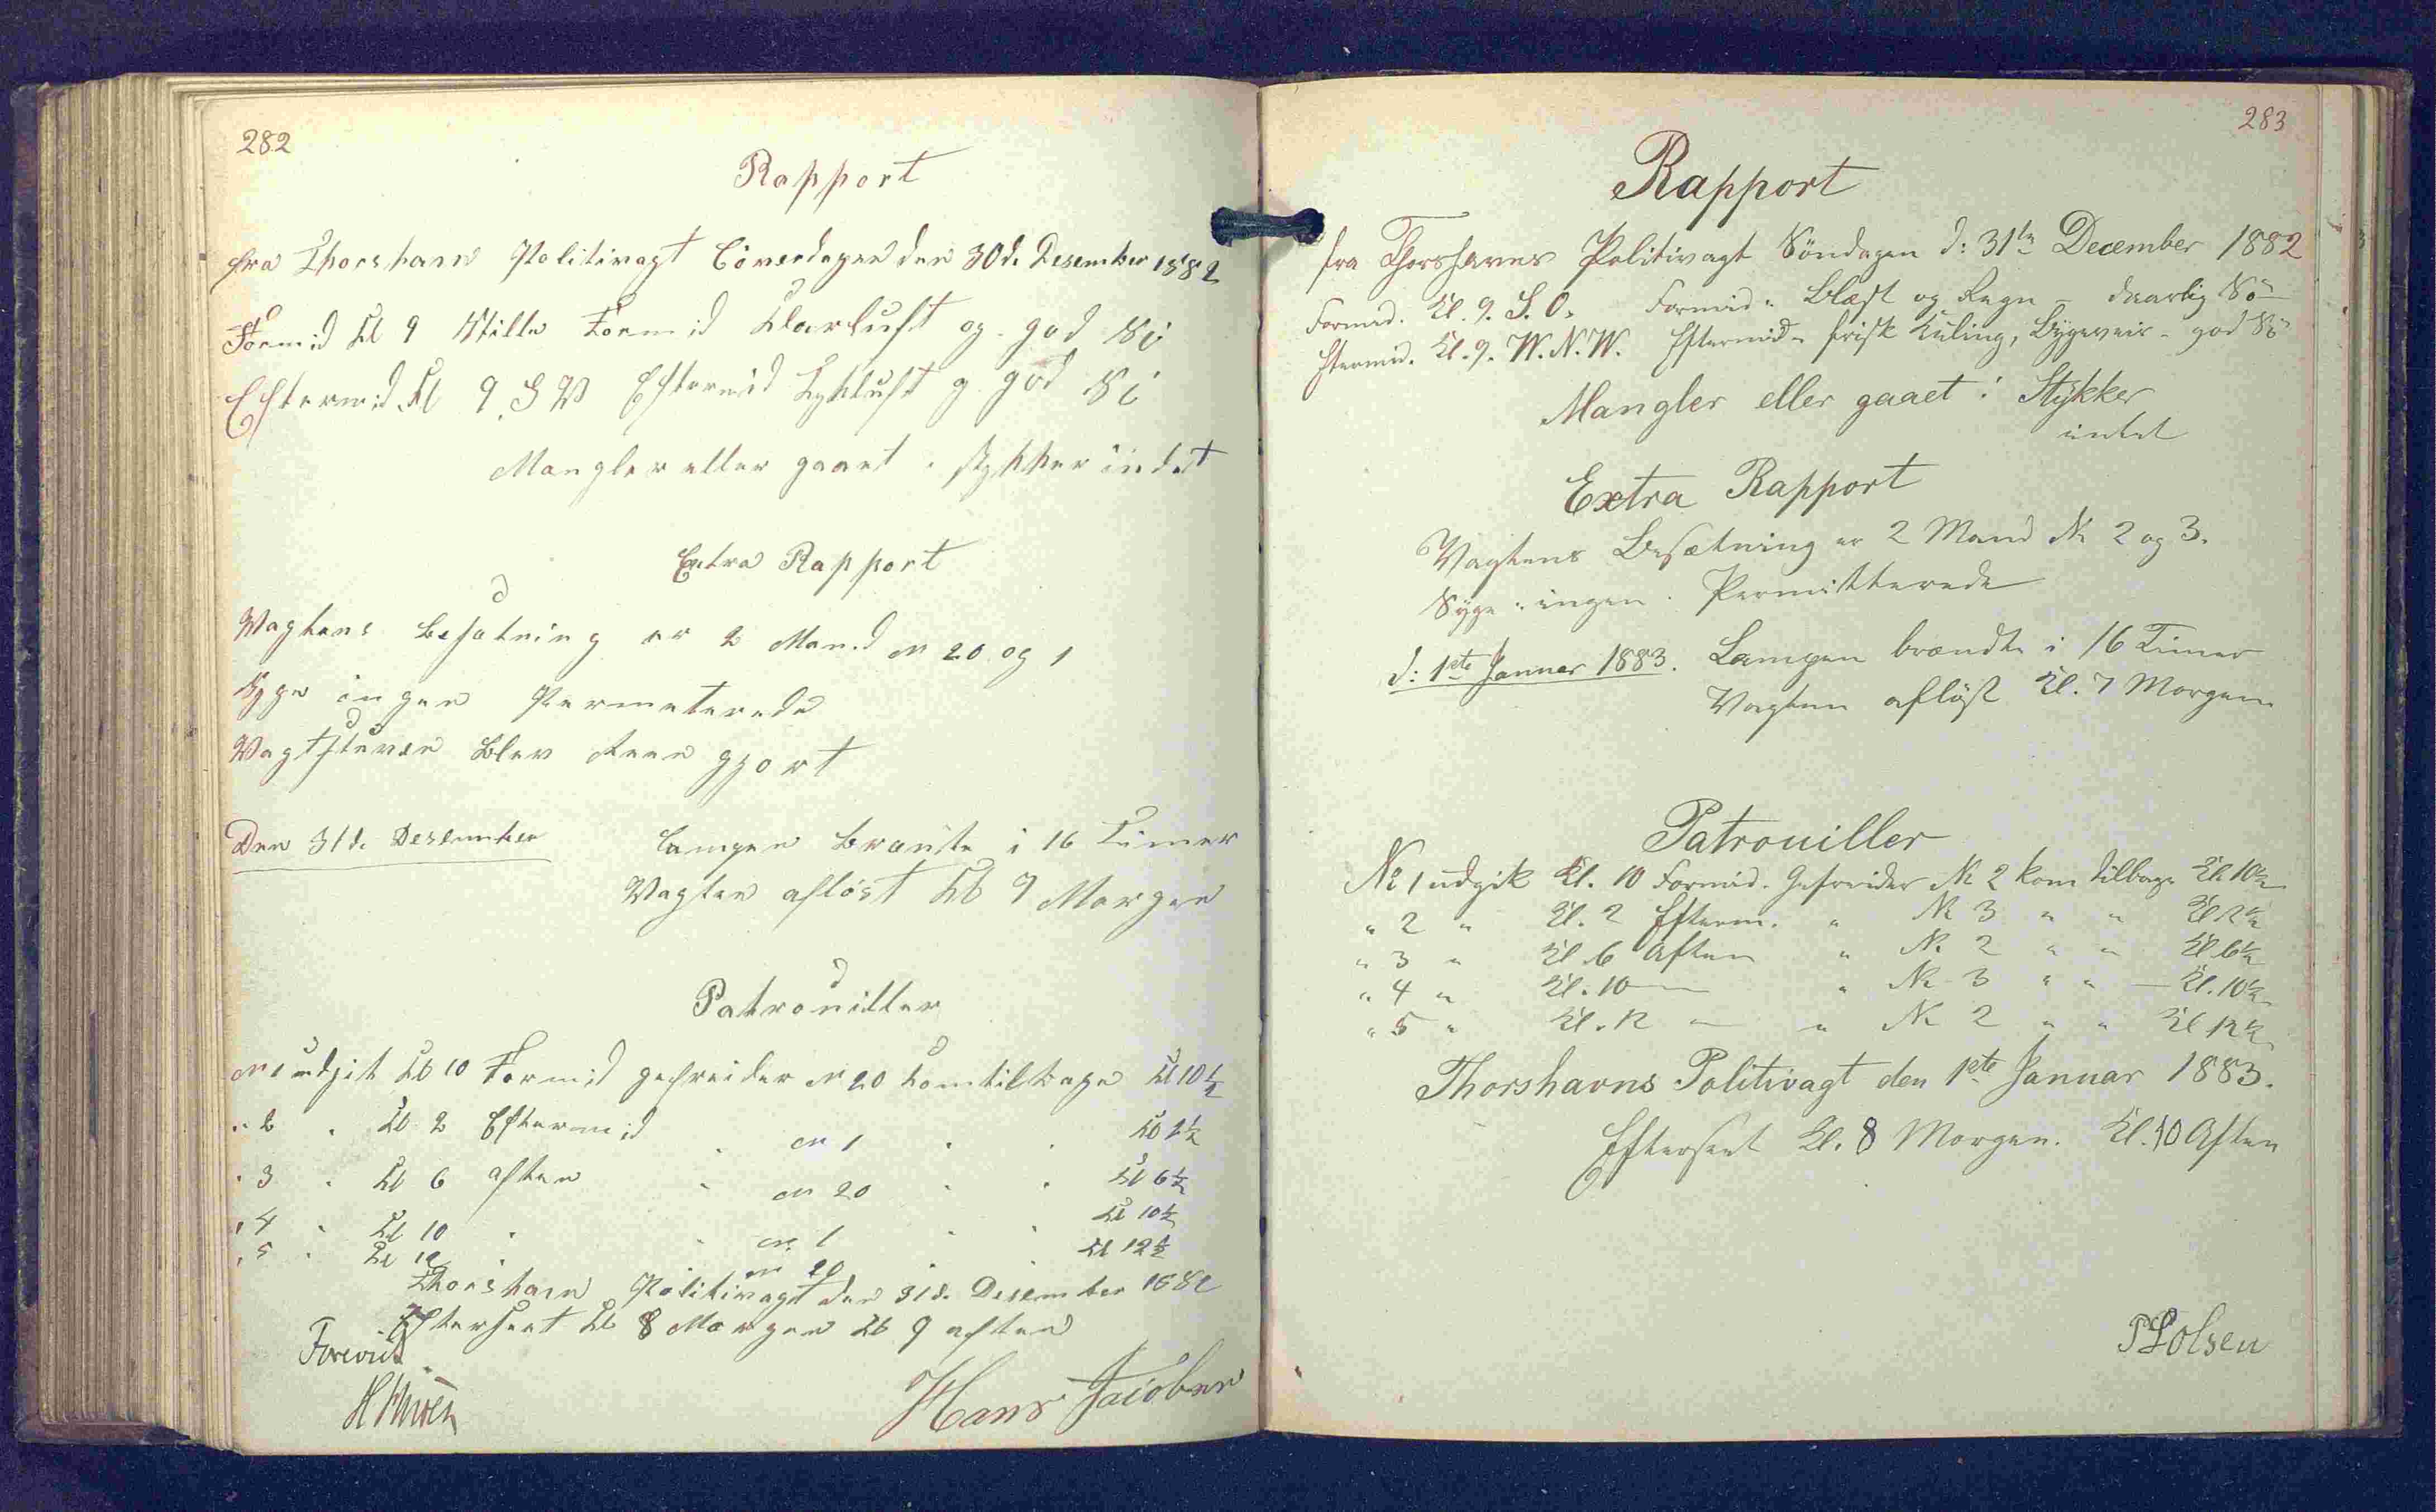 282
Rapport
fra Thorshavn Politivagt Löverdagen den 30d. Desember 1882
Formid Kl 9 Stille Formid Klarluft og god Sö
Eftermid Kl 9 S W Eftermid Tykluft g god Sö
Mangler eller gaaet i stykker indet
Extra Rapport
Vagtens besatning er 2 Mand N 20 og 1
Syge ingen Permeterede
Vagtstuven blev Reen gjort
Den 31d. Desember Lampen brante i 16 Timer
Vagten aflöst Kl 7 Morgen
Patrouiller
N 1 udgik Kl 10 Formid gefreider N 20 komtilbage Kl 10½
" 2 " Kl 2 Eftermid " N 1 " " Kl 2½
" 3 " Kl 6 aften " N 20 " " Kl 6½
" 4 " Kl 10 " " N 1 " " Kl 10½
" 5 " Kl 12 " " N 20 " " Kl 12½
Thorshavn Politivagt den 31d. Desember 1882
Efterseet Kl 8 Morgen Kl 9 aften
Forevist
Hans Jacobsen
283
Rapport
fra Thorshavns Politivagt Söndagen d: 31te December 1882
Formid. Kl. 9. S. O. Formid: Blæst og Regn – daarlig Sö
Eftermid. Kl. 9. W. N. W. Eftermid – frisk Kuling, Bygeveir – god Sö
Mangler eller gaaet i Stykker
intet
Extra Rapport
Vagtens Besætning er 2 Mand № 2 og 3.
Syge: ingen. Permitterede
d: 1ste Januar 1883. Lampen brændte i 16 Timer
Vagten aflöst Kl. 7 Morgen
Patrouiller
№ 1 udgik Kl. 10 Formid. Gefreider № 2 kom tilbage Kl 10½
" 2 " Kl. 2 Efterm. " № 3 " " Kl 2½
" 3 " Kl 6 Aften " № 2 " " Kl 6½
" 4 " Kl. 10 — " № 3 " " — Kl. 10½
" 5 " Kl. 12 — " № 2 " " Kl 12½
Thorshavns Politivagt den 1ste Januar 1883.
Efterseet Kl. 8 Morgen. Kl. 10 Aften
Olsen